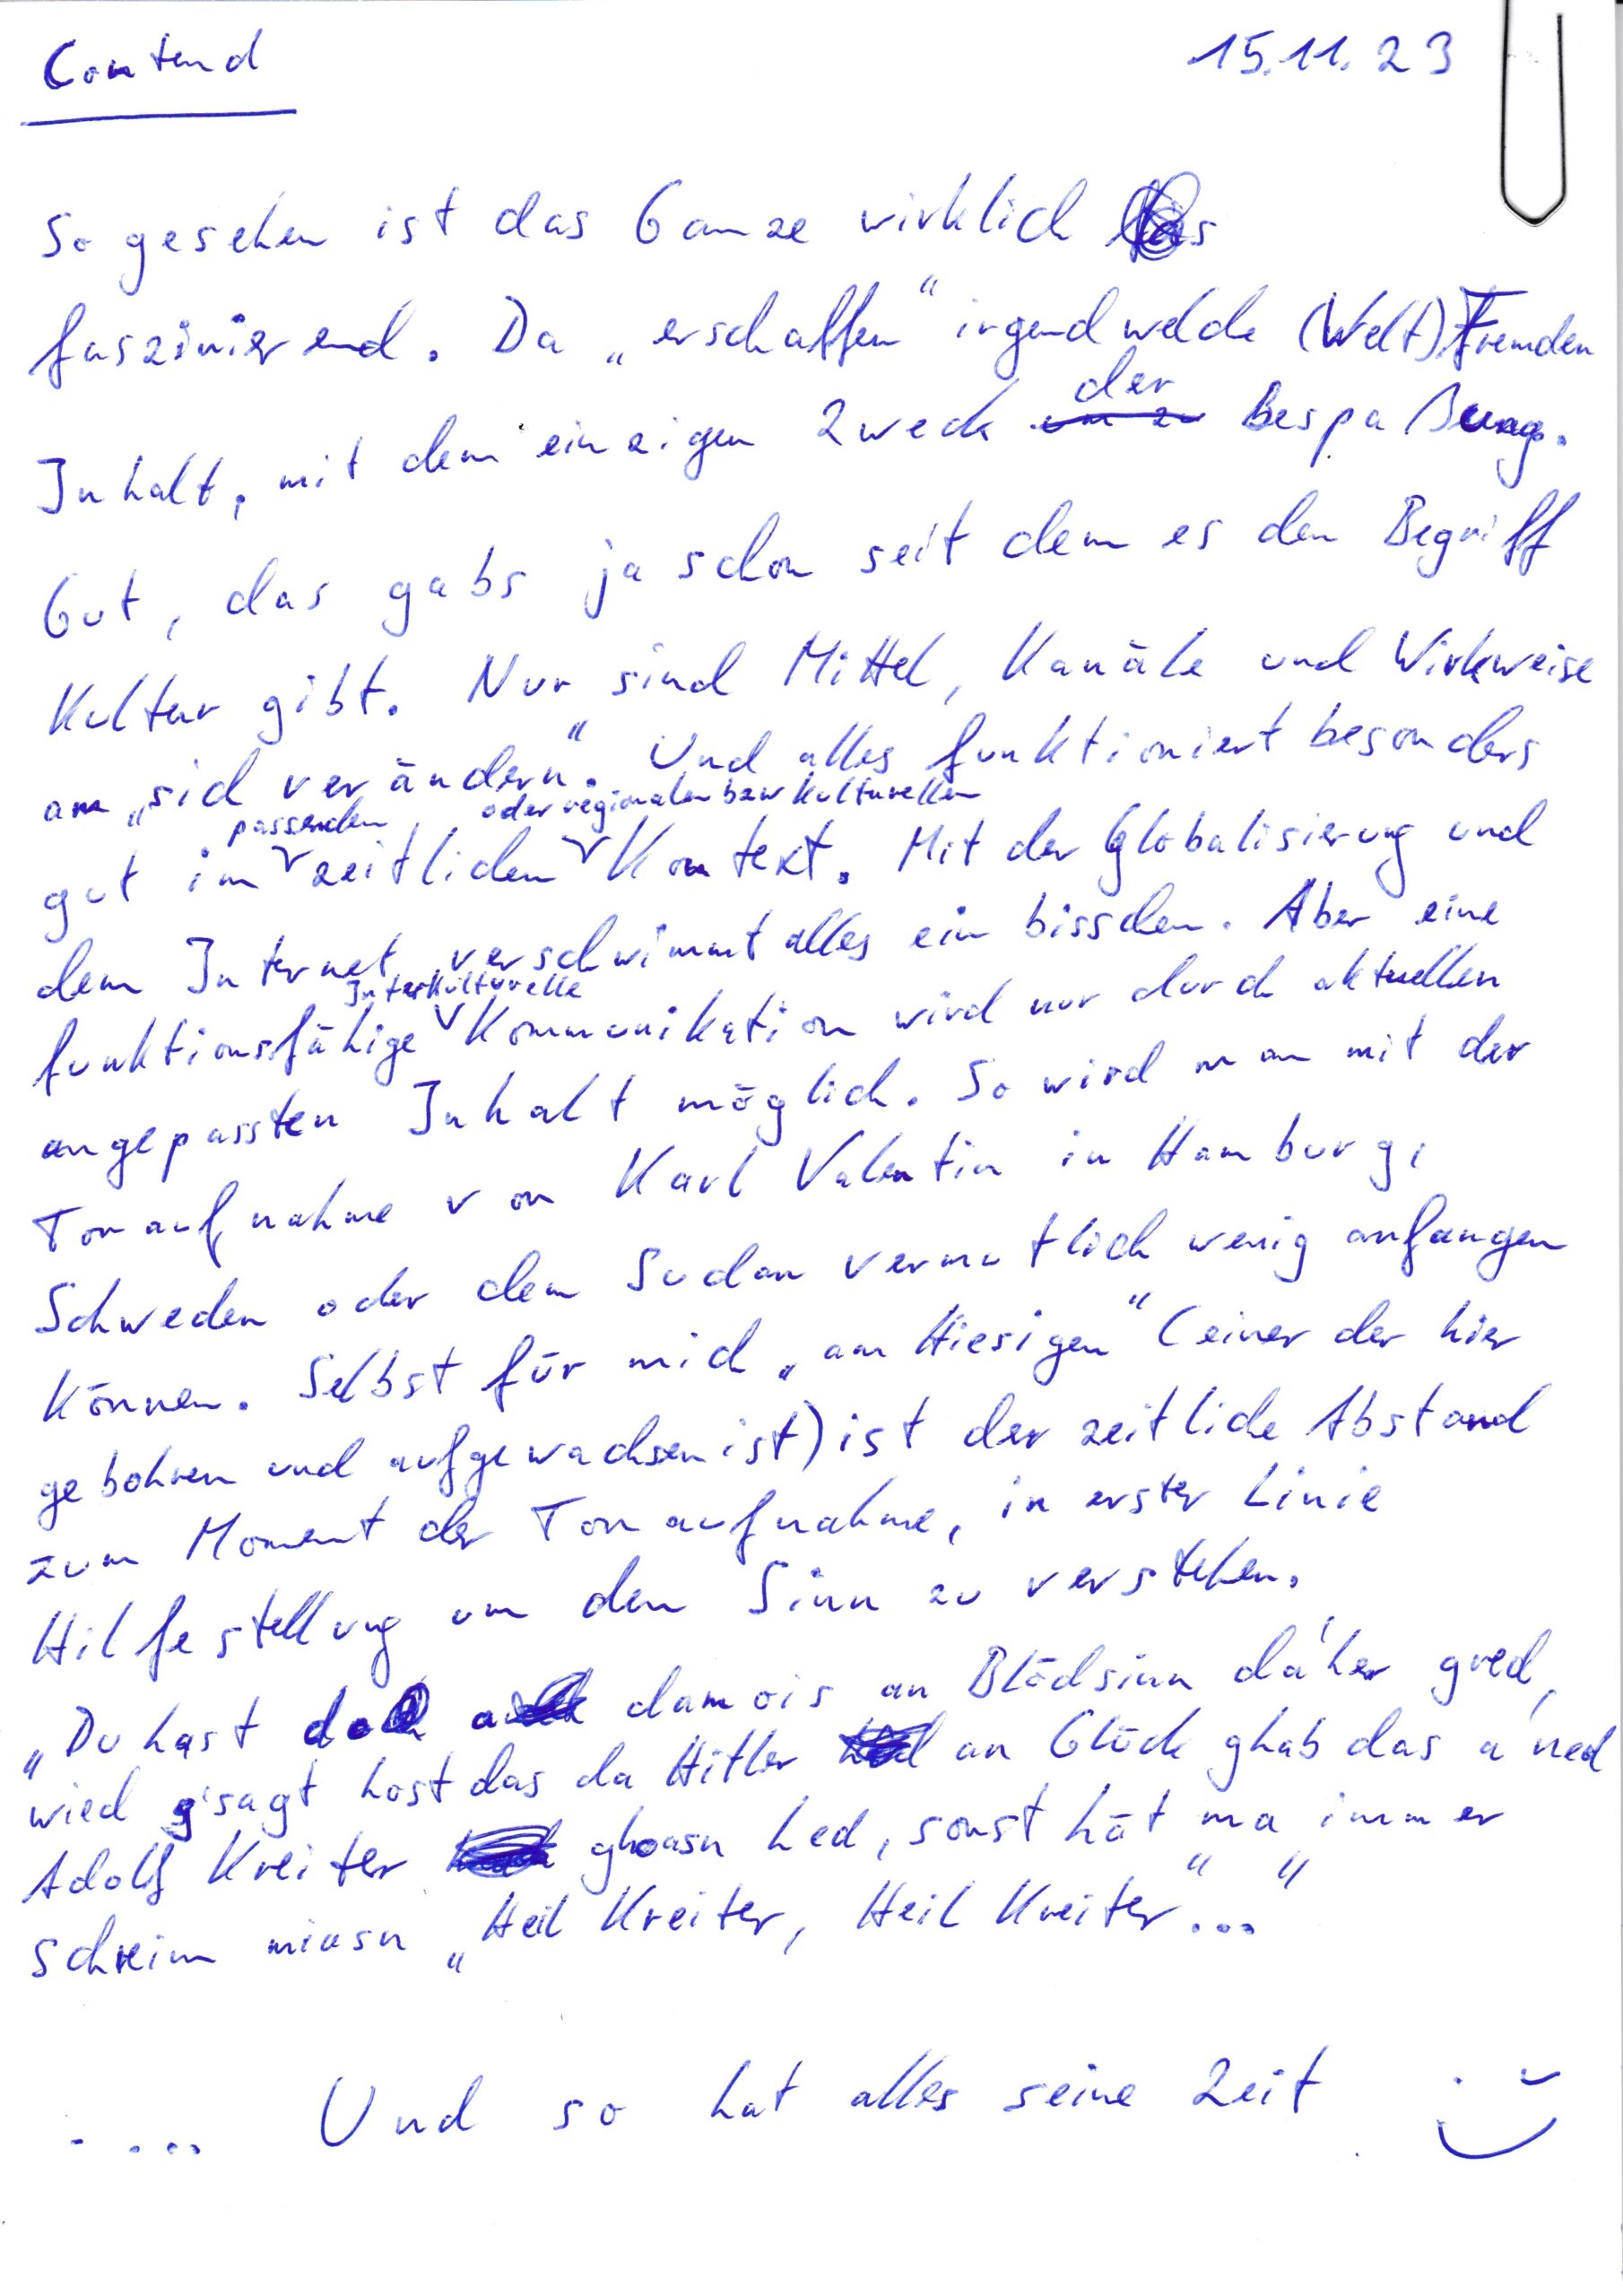 Contend 15.11.23
So gesehen ist das Ganze wirklich
faszinierend. Da „erschaffen" irgendwelche (Welt)Fremden
der
Inhalt, mit dem einzigen Zweck um zu Bespaßung.
Gut, das gabs ja schon seit dem es den Begriff
Kultur gibt. Nur sind Mittel, Kanäle und Wirkweise
am „sich verändern". Und alles funktioniert besonders
passenden oder regionalen bzw kulturellen
gut im zeitlichen Kontext. Mit der Globalisierung und
dem Internet verschwimmt alles ein bisschen. Aber eine
Interkulturelle
funktionsfähige Kommunikation wird nur durch aktuellen
angepassten Inhalt möglich. So wird man mit der
Tonaufnahme von Karl Valentin in Hamburg,
Schweden oder dem Sudan vermutlich wenig anfangen
können. Selbst für mich „an Hiesigen" (einer der hier
gebohren und aufgewachsen ist) ist der zeitliche Abstand
zum Moment der Tonaufnahme, in erster Linie
Hilfestellung um den Sinn zu verstehen.
„Du hast damois an Blödsinn dáher gred,
wied g'sagt host das da Hitler an Glück ghab das a ned
Adolf Kreiter ghoasn hed, sonst hät ma immer
schreim miasn „Heil Kreiter, Heil Kreiter"..."
. ... Und so hat alles seine Zeit